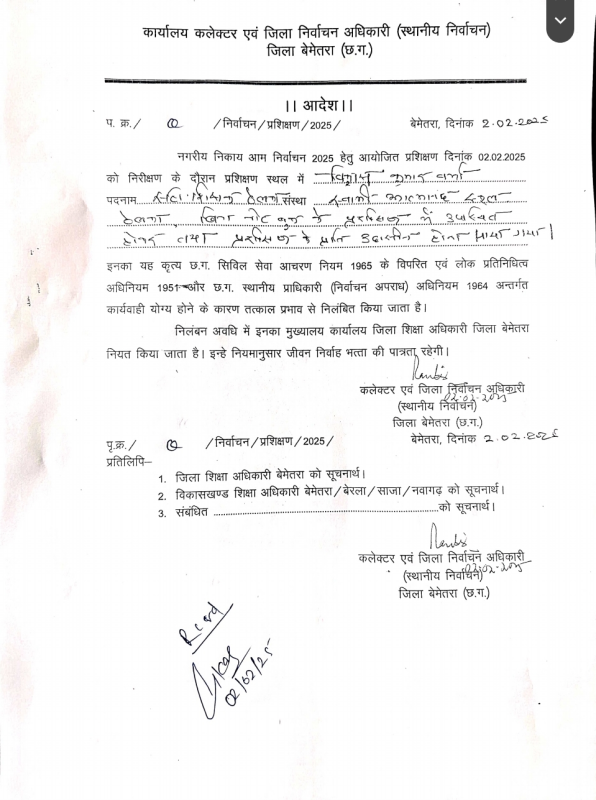 कार्यालय कलेक्टर एवं जिला निर्वाचन अधिकारी (स्थानीय निर्वाचन)
जिला बेमेतरा (छ.ग.)
।। आदेश।।
प. क्र./ /निर्वाचन/प्रशिक्षण/2025/ बेमेतरा, दिनांक 2.02.2025
नगरीय निकाय आम निर्वाचन 2025 हेतु आयोजित प्रशिक्षण दिनांक 02.02.2025
को निरीक्षण के दौरान प्रशिक्षण स्थल में कुमार वर्मा
पदनाम संस्था स्वामी आत्मानंद स्कूल
बिना के प्रशिक्षण में उपस्थित
होकर तथा प्रशिक्षण के प्रति उदासीन होना पाया गया।
इनका यह कृत्य छ.ग. सिविल सेवा आचरण नियम 1965 के विपरित एवं लोक प्रतिनिधित्व
अधिनियम 1951 और छ.ग. स्थानीय प्राधिकारी (निर्वाचन अपराध) अधिनियम 1964 अन्तर्गत
कार्यवाही योग्य होने के कारण तत्काल प्रभाव से निलंबित किया जाता है।
निलंबन अवधि में इनका मुख्यालय कार्यालय जिला शिक्षा अधिकारी जिला बेमेतरा
नियत किया जाता है। इन्हे नियमानुसार जीवन निर्वाह भत्ता की पात्रता रहेगी।
कलेक्टर एवं जिला निर्वाचन अधिकारी
02.02.2025
(स्थानीय निर्वाचन)
जिला बेमेतरा (छ.ग.)
पृ.क्र./ /निर्वाचन/प्रशिक्षण/2025/ बेमेतरा, दिनांक 2.02.2025
प्रतिलिपि–
1. जिला शिक्षा अधिकारी बेमेतरा को सूचनार्थ।
2. विकासखण्ड शिक्षा अधिकारी बेमेतरा/बेरला/साजा/नवागढ़ को सूचनार्थ।
3. संबंधित ........................................................को सूचनार्थ।
कलेक्टर एवं जिला निर्वाचन अधिकारी
02.02.2025
(स्थानीय निर्वाचन)
जिला बेमेतरा (छ.ग.)
Rcvd
02/02/25